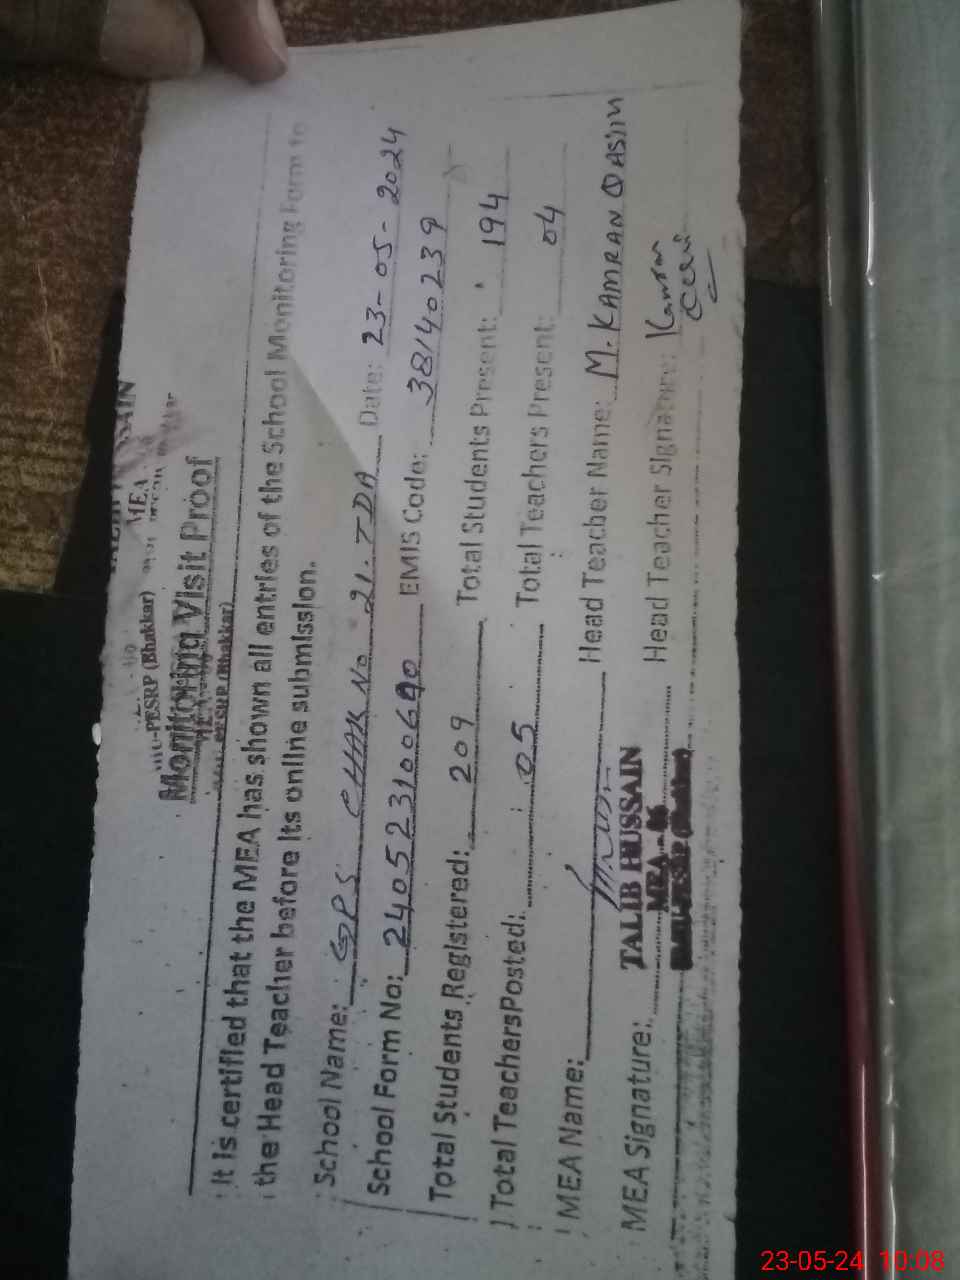 HUSSAIN
MEA
PESRP (Bhakkar)
Monitoring Visit Proof
PESRP (Bhakkar)
It is certified that the MEA has shown all entries of the School Monitoring Form to
the Head Teacher before its online submission.
School Name: GPS CHAK No 21. TDA Date: 23-05-2024
School Form No: EMIS Code: 38140239
Total Students Registered: 209 Total Students Present: 194
Total Teachers Posted: 05 Total Teachers Present: 04
MEA Name: Head Teacher Name: M. KAMRAN QASIM
MEA Signature: Head Teacher Signature: Kamran
TALIB HUSSAIN
MEA - 06
23-05-24 10:08